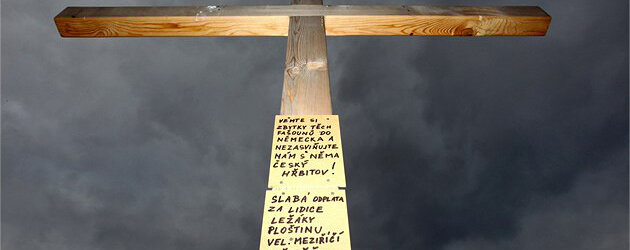 VEMTE SI
ZBYTKY TĚCH
FAŠOUNŮ DO
NĚMECKA A
NEZASVIŇUJTE
NÁM S NĚMA
ČESKÝ
HŘBITOV!
SLABÁ ODPLATA
ZA LIDICE
LEŽÁKY
PLOŠTINU
VEL. MEZIŘÍČÍ